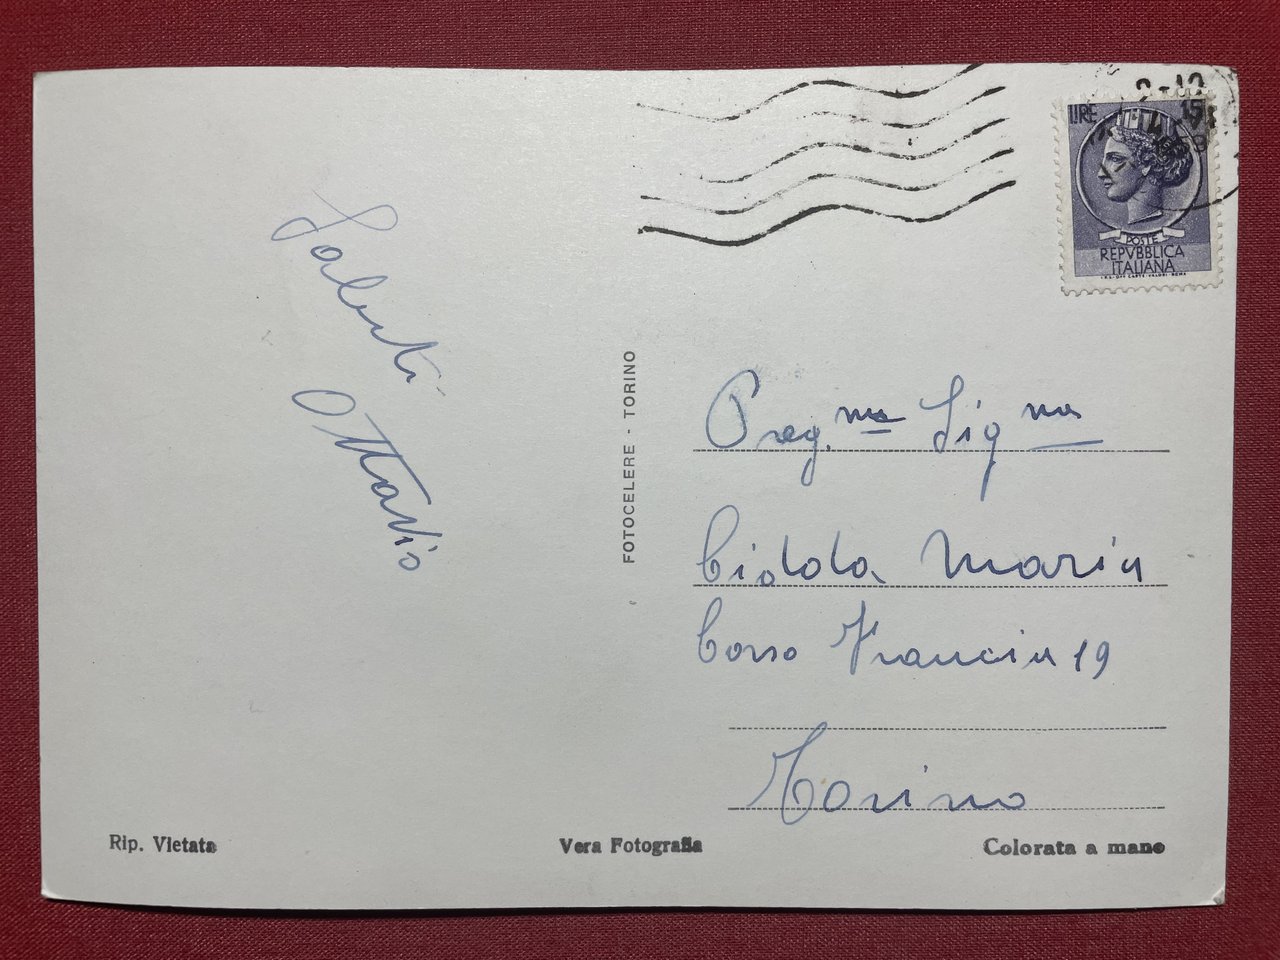 Saluti
Ottavio
FOTOCELERE - TORINO
LIRE 15
POSTE
REPVBBLICA
ITALIANA
Preg.ma Sig.na
Maria
Corso Francia 19
Torino
Rip. Vietata
Vera Fotografia
Colorata a mano